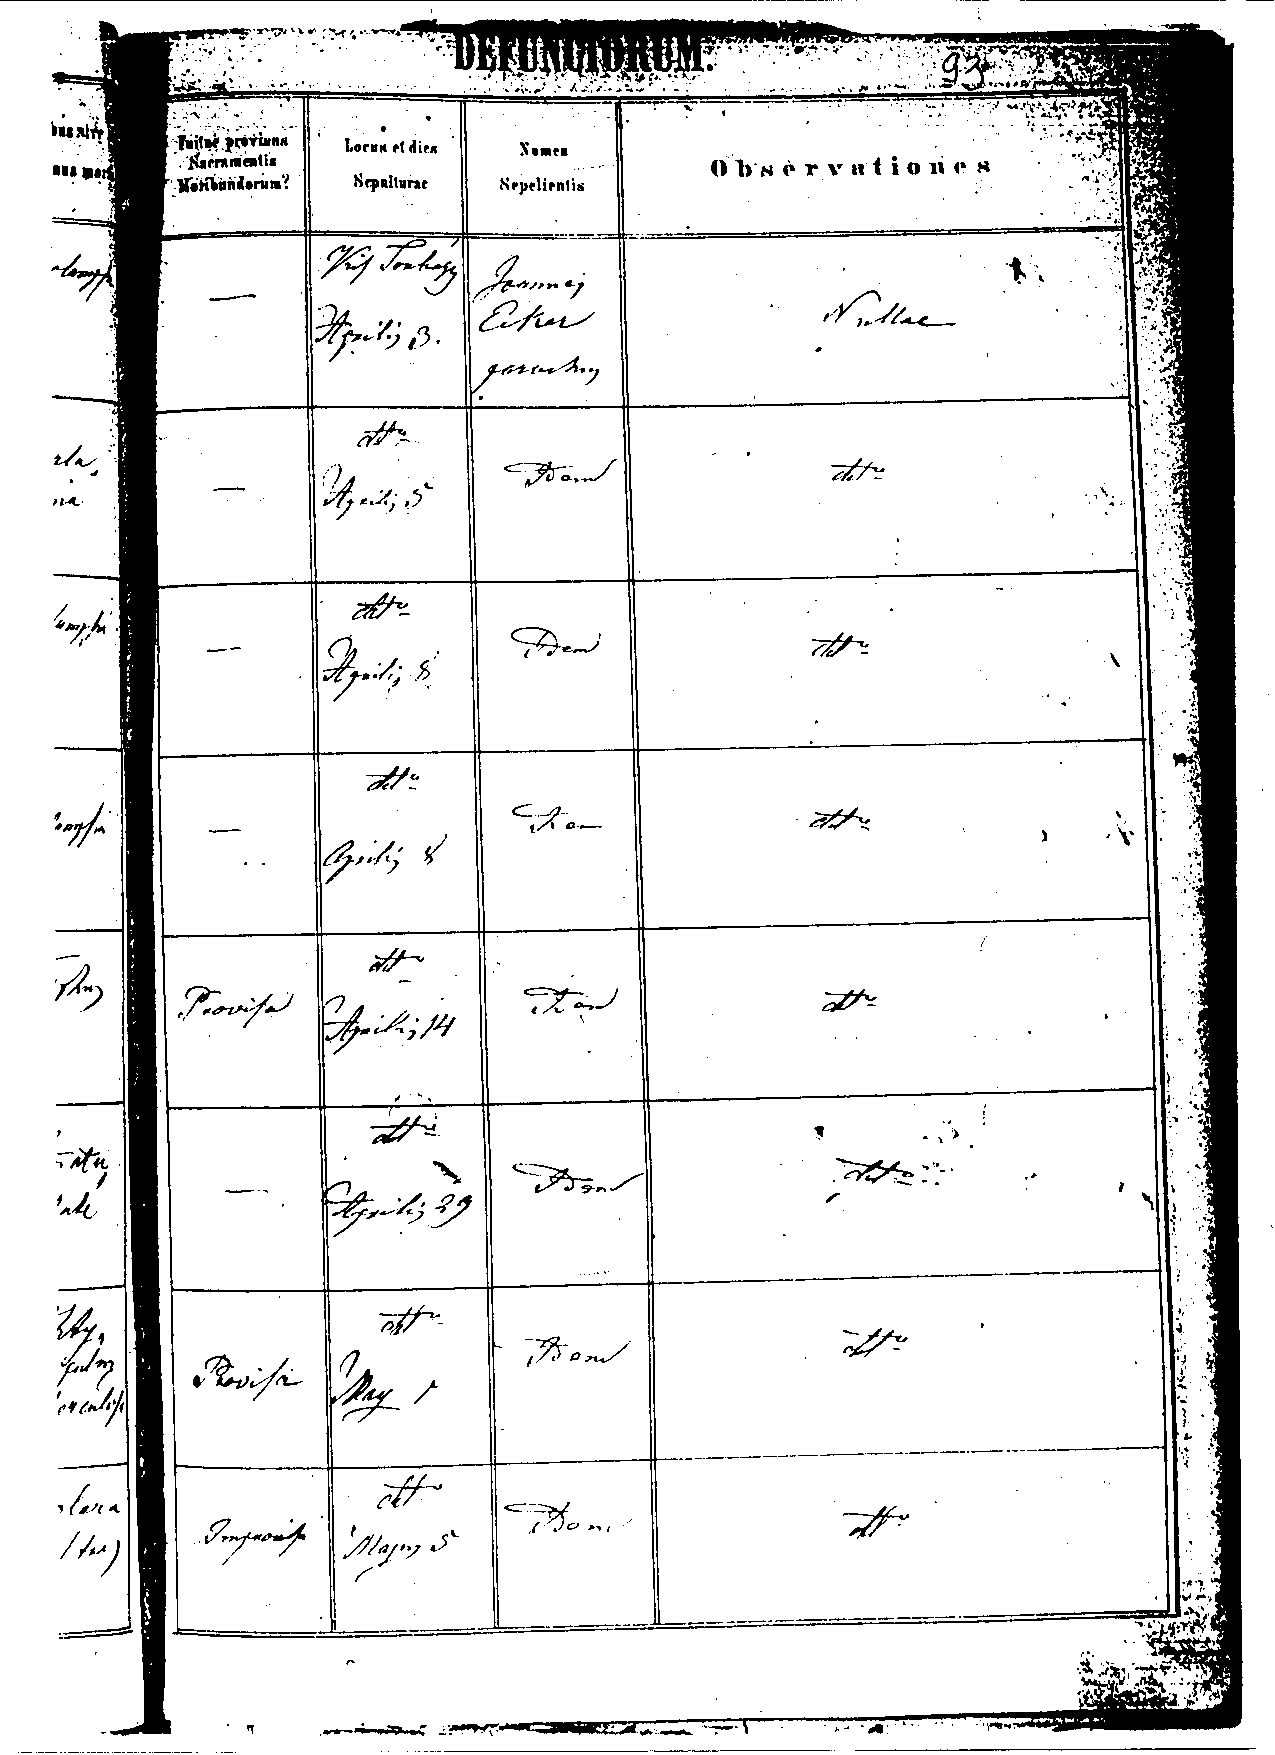 DEFUNCTORUM.
93
Fuitne provisus
Sacramentis
Moribundorum?
Locus et dies
Sepulturae
Nomen
Sepelientis
Observationes
—
Aprilis 3.
Joannes
Eiker
parochus
Nullae
—
dtto
Aprilis 5
Idem
dtto
—
dtto
Aprilis 8
Idem
dtto
—
dtto
Aprilis 8
Idem
dtto
Provisa
dtto
Aprilis 14
Idem
dtto
—
dtto
Aprilis 29
Idem
dtto
Provisa
dtto
May 1
Idem
dtto
Improvisa
dtto
Majus 5
Idem
dtto